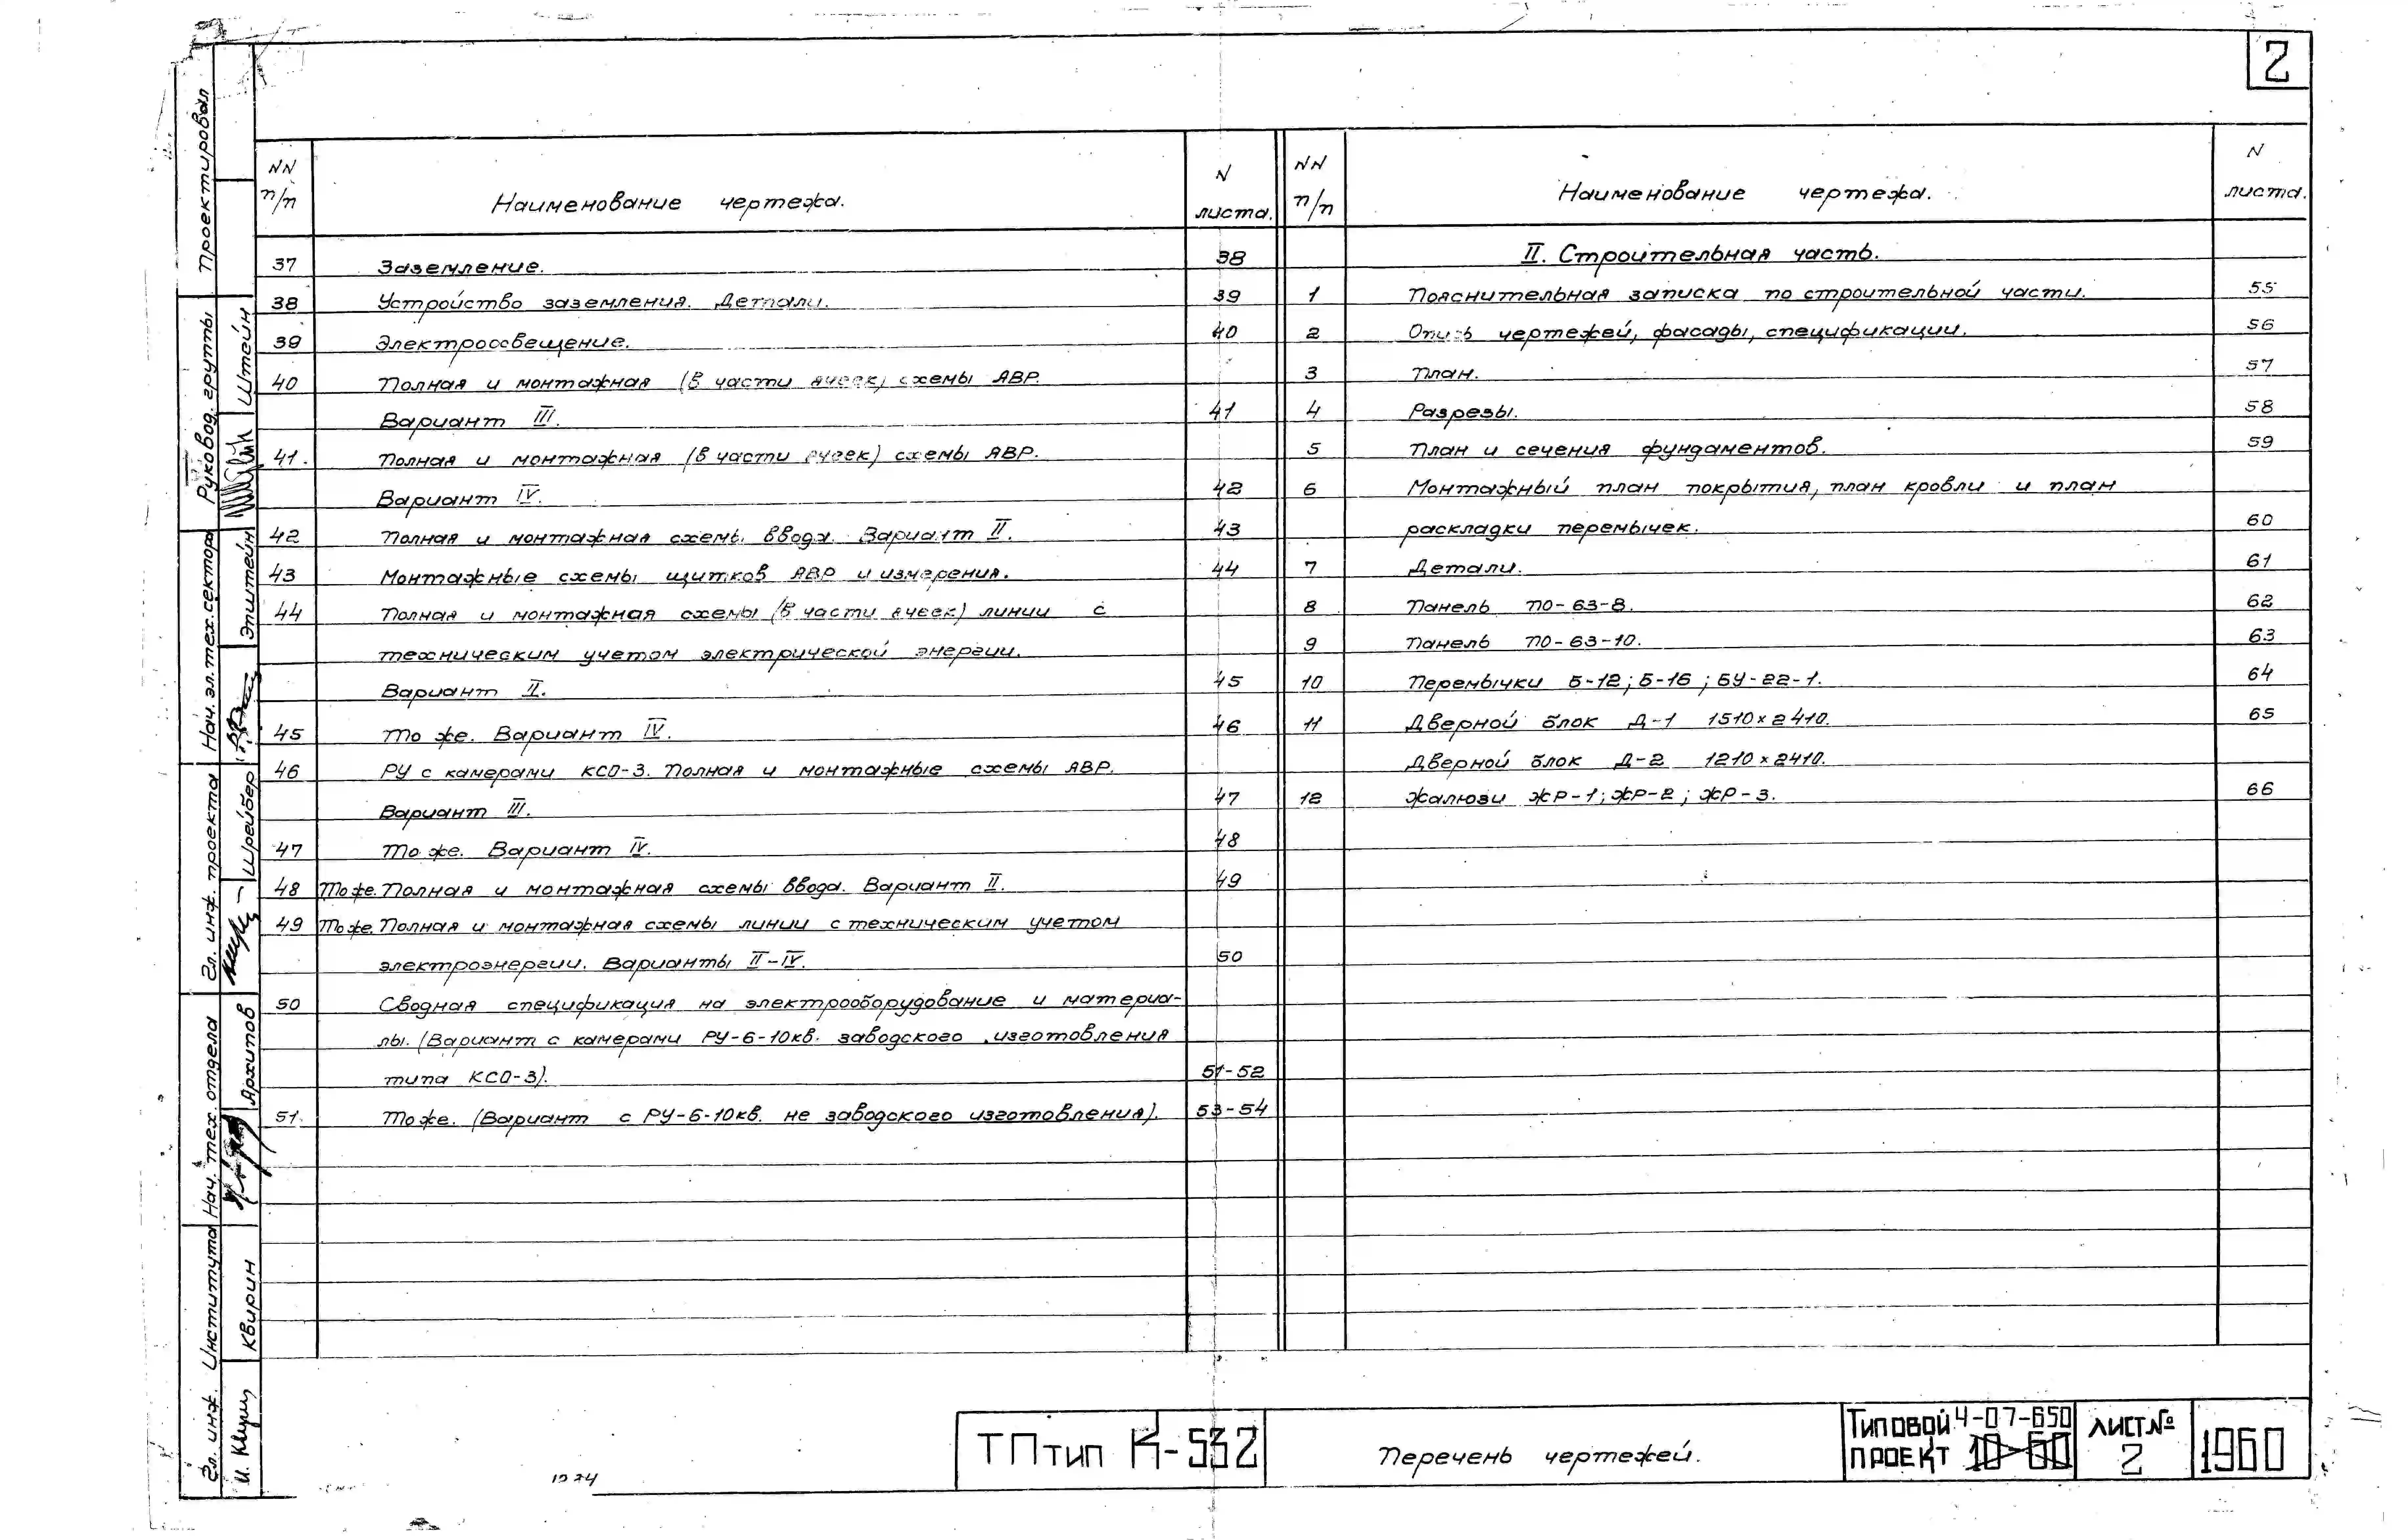 2
NN п/п Наименование чертежа. N листа.
37 Заземление. 38
38 Устройство заземления. Детали. 39
39 Электроосвещение. 40
40 Полная и монтажная (в части ячеек) схемы АВР.
Вариант III. 41
41. Полная и монтажная (в части ячеек) схемы АВР.
Вариант IV. 42
42 Полная и монтажная схемы ввода. Вариант II. 43
43 Монтажные схемы щитков АВР и измерения. 44
44 Полная и монтажная схемы (в части ячеек) линии с
техническим учетом электрической энергии.
Вариант II. 45
45 То же. Вариант IV. 46
46 РУ с камерами КСО-3. Полная и монтажные схемы АВР.
Вариант III. 47
47 То же. Вариант IV. 48
48 То же. Полная и монтажная схемы ввода. Вариант II. 49
49 То же. Полная и монтажная схемы линии с техническим учетом
электроэнергии. Варианты II-IV. 50
50 Сводная спецификация на электрооборудование и материа-
лы. (Вариант с камерами РУ-6-10кв. заводского изготовления
типа КСО-3). 51-52
51. То же. (Вариант с РУ-6-10кв. не заводского изготовления). 53-54
NN п/п Наименование чертежа. N листа.
II. Строительная часть.
1 Пояснительная записка по строительной части. 55
2 Опись чертежей, фасады, спецификации. 56
3 План. 57
4 Разрезы. 58
5 План и сечения фундаментов. 59
6 Монтажный план покрытия, план кровли и план
раскладки перемычек. 60
7 Детали. 61
8 Панель ПО-63-8. 62
9 Панель ПО-63-10. 63
10 Перемычки Б-12; Б-16; БУ-22-1. 64
11 Дверной блок Д-1 1510×2410. 65
Дверной блок Д-2 1210×2410.
12 Жалюзи ЖР-1; ЖР-2; ЖР-3. 66
Проектировал
Руковод. группы Штейн
Нач. эл. тех. сектора Эпштейн
Гл. инж. проекта Шрейбер
Нач. тех. отдела Архипов
Гл. инж. Института Квирин
ТП тип К-532
Перечень чертежей.
Типовой 4-07-650
проект 10-60
лист №
2
1960